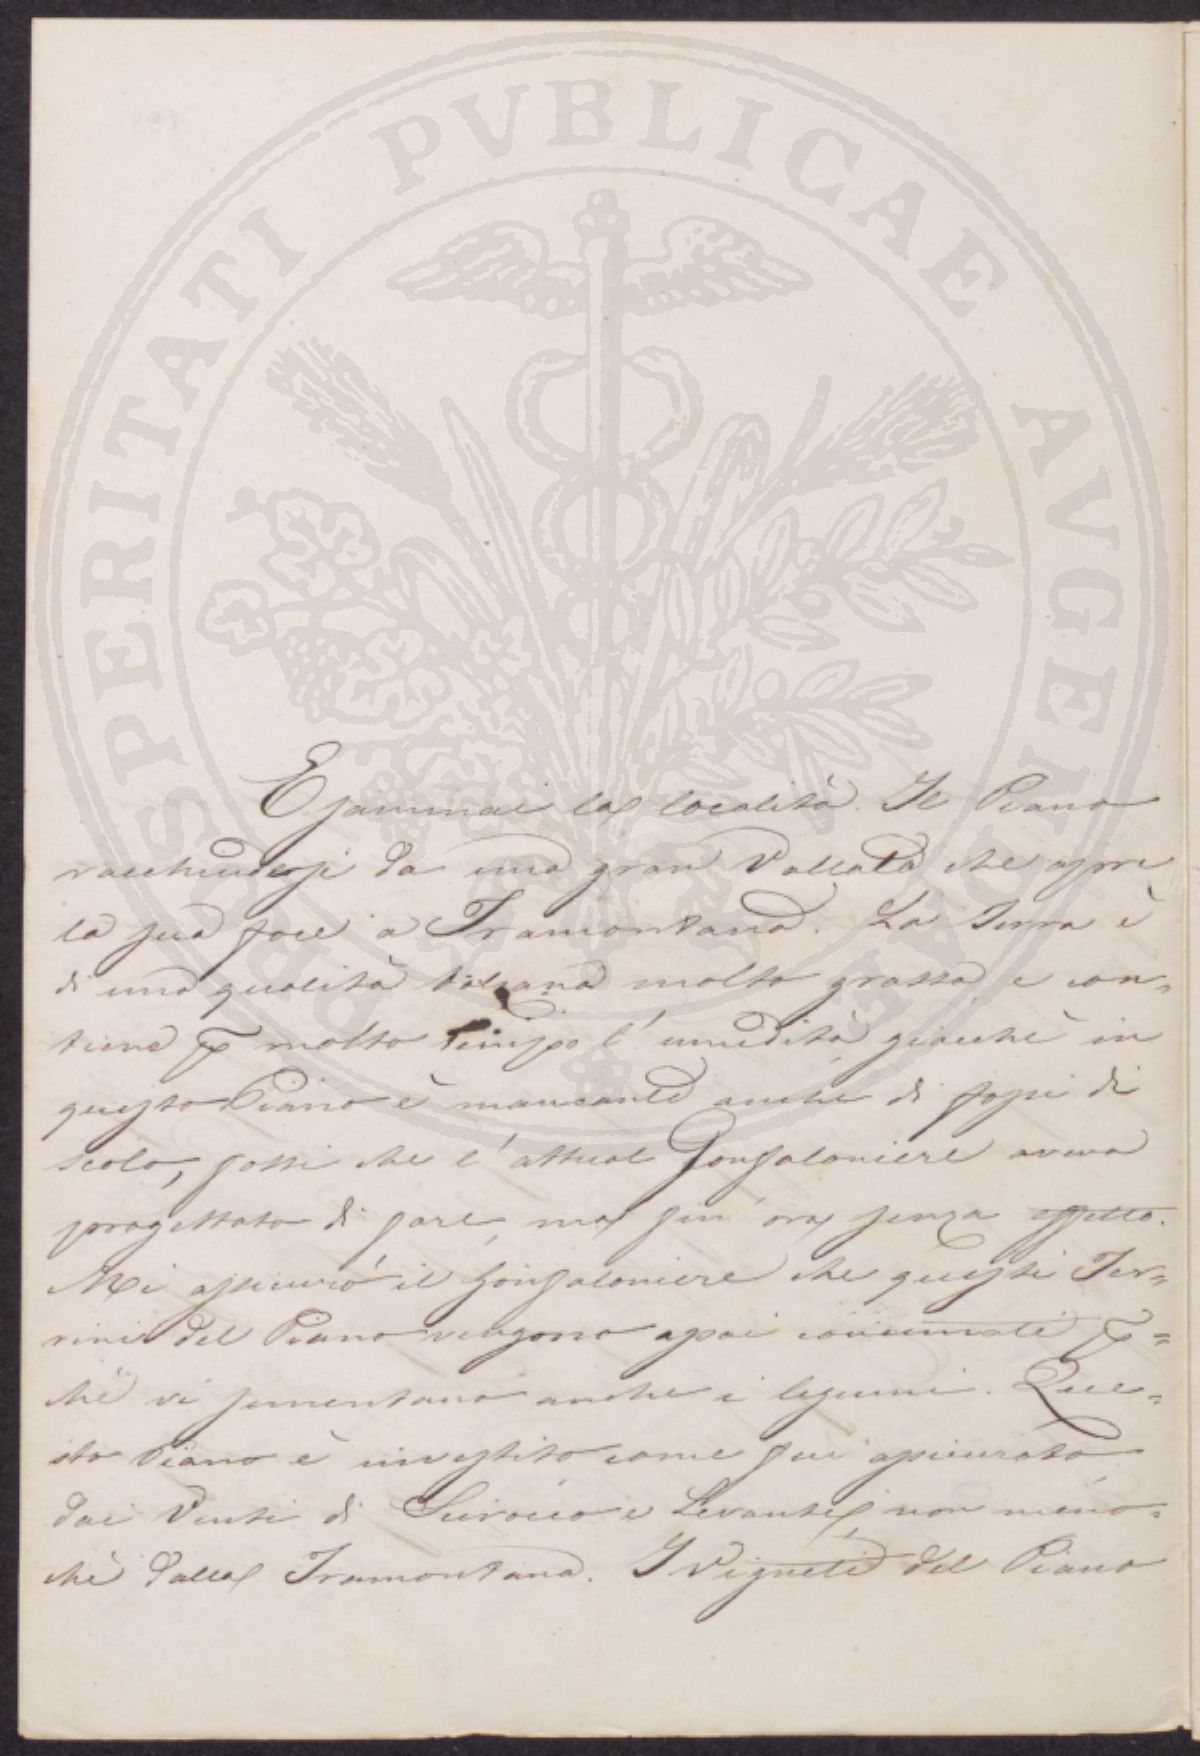 PROSPERITATI PVBLICAE AVGENDAE
Esaminai la località. Il Piano
racchiudesi da una gran Vallata che apre
la sua foce a Tramontana. La Terra è
di una qualità toscana molto grassa e con=
tiene p molto tempo l'umidità giacchè in
questo Piano è mancante anche di fossi di
scolo, fossi che l'attual Gonfaloniere aveva
progettato di fare, ma fin'ora senza effetto.
Mi assicurò il Gonfaloniere che questi Ter=
reni del Piano vengono assai concimati p=
chè vi sementano anche i legumi. Que=
sto Piano è investito come fui assicurato
dai Venti di Scirocco e Levante, non meno=
chè dalla Tramontana. I Vigneti del Piano